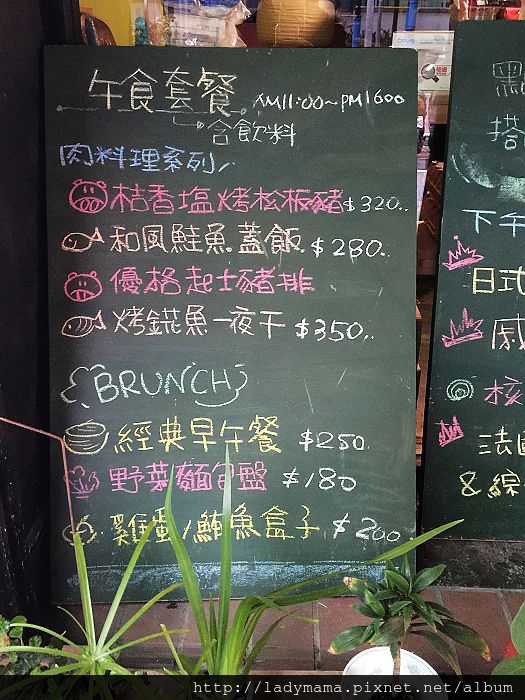 午食套餐 AM11:00~PM1600
含飲料
肉料理系列
桔香塩烤松板豬 $320..
和風鮭魚蓋飯 $280.
優格起士豬排
烤錵魚一夜干 $350.
BRUNCH
經典早午餐 $250.
野菜麵包盤 $180
雞蛋/鮪魚盒子 $200
點
搭
下午
日式
戚
核
法國
&綜
http://ladymama.pixnet.net/album